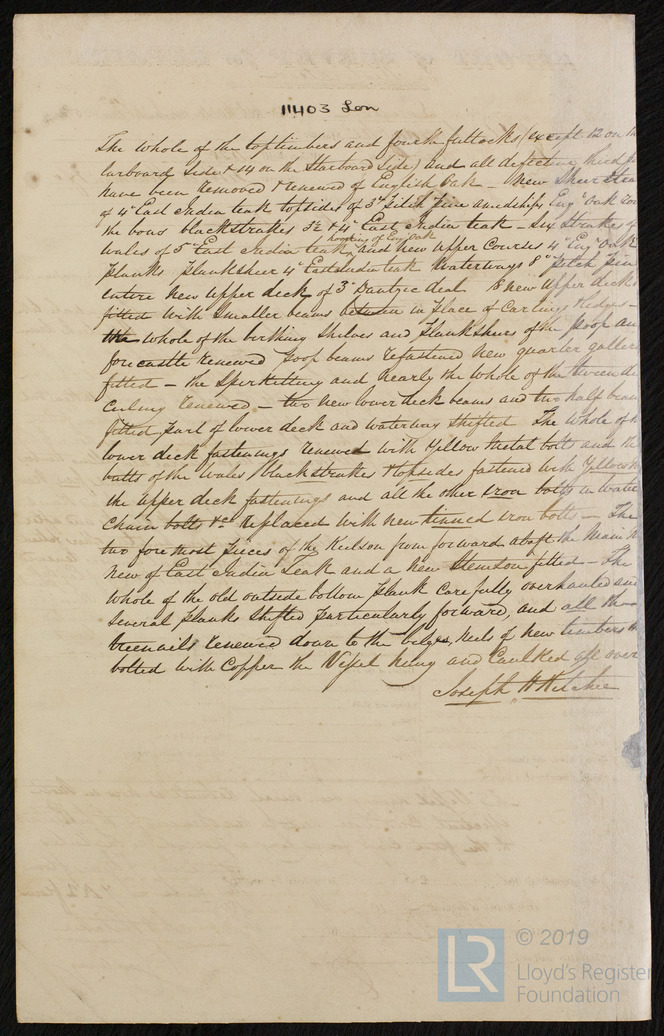 11403 Lon
The whole of the toptimbers and fourth futtocks (except 12 on
larboard side & 14 on the Starboard side) and all defective third
have been removed & renewed of English Oak – New Sheer
of 4" East India teak topsides of 3" pine amidships Eng Oak
the bows blackstrakes 4" East India teak – Six Strakes of
hooking of Eng Oak
Wales of 5" East India teak and new upper Courses 4" Eng Oak
planks planksheer 4" East India teak Waterways 8" pitch pine
entire New upper deck of 3" Dantzic deal 8 new upper deck
fitted with smaller beams between in place of Carling
the whole of the birthing Shelves and planksheers of the poop and
forecastle renewed poop beams refastened New quarter
fitted – the Sperketting and nearly the whole of the tween
Ceiling renewed – two new lower deck beams and two half
fitted part of lower deck and waterway shifted The whole of
lower deck fastenings renewed with Yellow Metal bolts and the
butts of the wales blackstrakes & topsides fastened with Yellow
the upper deck fastenings and all the other iron bolts in
Chain bolts &c replaced with new tinned iron bolts – The
two foremost pieces of the Keelson from forward abaft the Main
new of East India Teak and a new Stemson fitted – The
whole of the old outside bottom plank carefully overhauled and
several planks shifted particularly forward, and all the
treenails renewed down to the bilges, heels of new timbers
bolted with Copper the Vessel and Caulked all over
Joseph H Ritchie
© 2019
LR
Lloyd's Register
Foundation